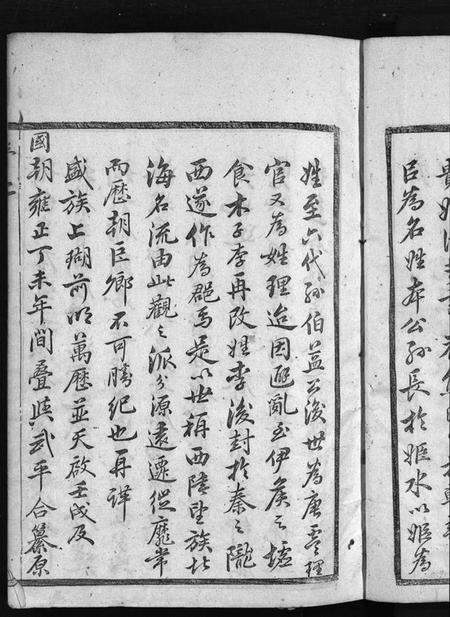 臣為名姓本公孫長於姬水以姬為
姓至六代孫伯益公後世為唐堯理
官又為姓理迨因避亂至伊侯之墟
食木子李再改姓李後封於秦之隴
西遂作為郡焉是以世稱西隴望族北
海名流由此觀之派分源遠遷徙靡常
而歷朝臣鄉不可勝紀也再詳
盛族上瑚前明萬歷並天啟壬戌及
國朝雍正丁未年間疊與武平合纂原